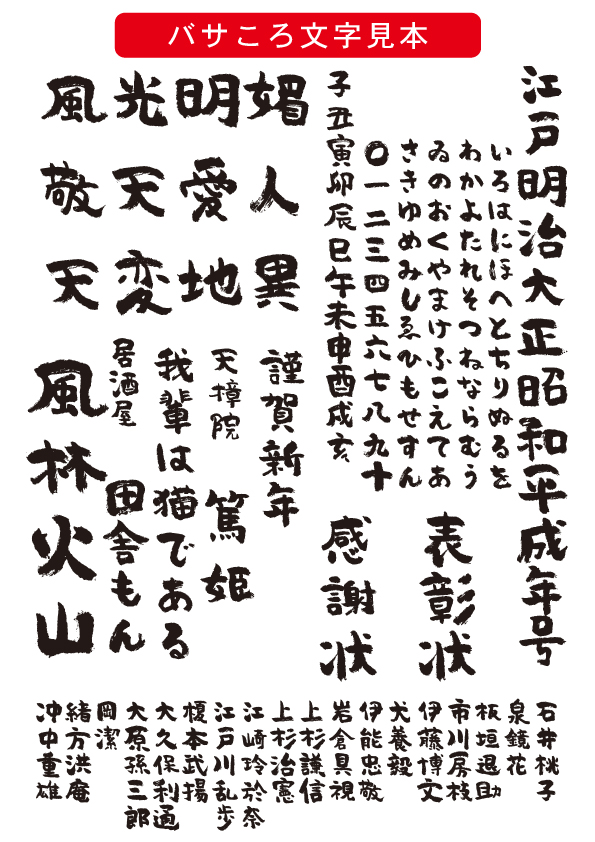 バサころ文字見本
江戸明治大正昭和平成年号
いろはにほへとちりぬるを
わかよたれそつねならむう
ゐのおくやまけふこえてあ
さきゆめみしゑひもせすん
〇一二三四五六七八九十
子丑寅卯辰巳午未申酉戌亥
表彰状
感謝状
風光明媚
敬天愛人
天変地異
謹賀新年
天樟院 篤姫
我輩は猫である
居酒屋 田舎もん
風林火山
石井桃子
泉鏡花
板垣退助
市川房枝
伊藤博文
犬養毅
伊能忠敬
岩倉具視
上杉謙信
上杉治憲
江崎玲於奈
江戸川乱歩
榎本武揚
大久保利通
大原孫三郎
岡潔
緒方洪庵
沖中重雄